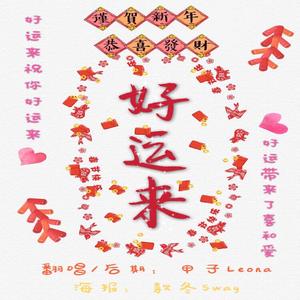 謹賀新年
恭喜發財
好运来祝你好运来
好运来
好运带来了喜和爱
翻唱/后期：甲子Leona
海报：歌冬Swag